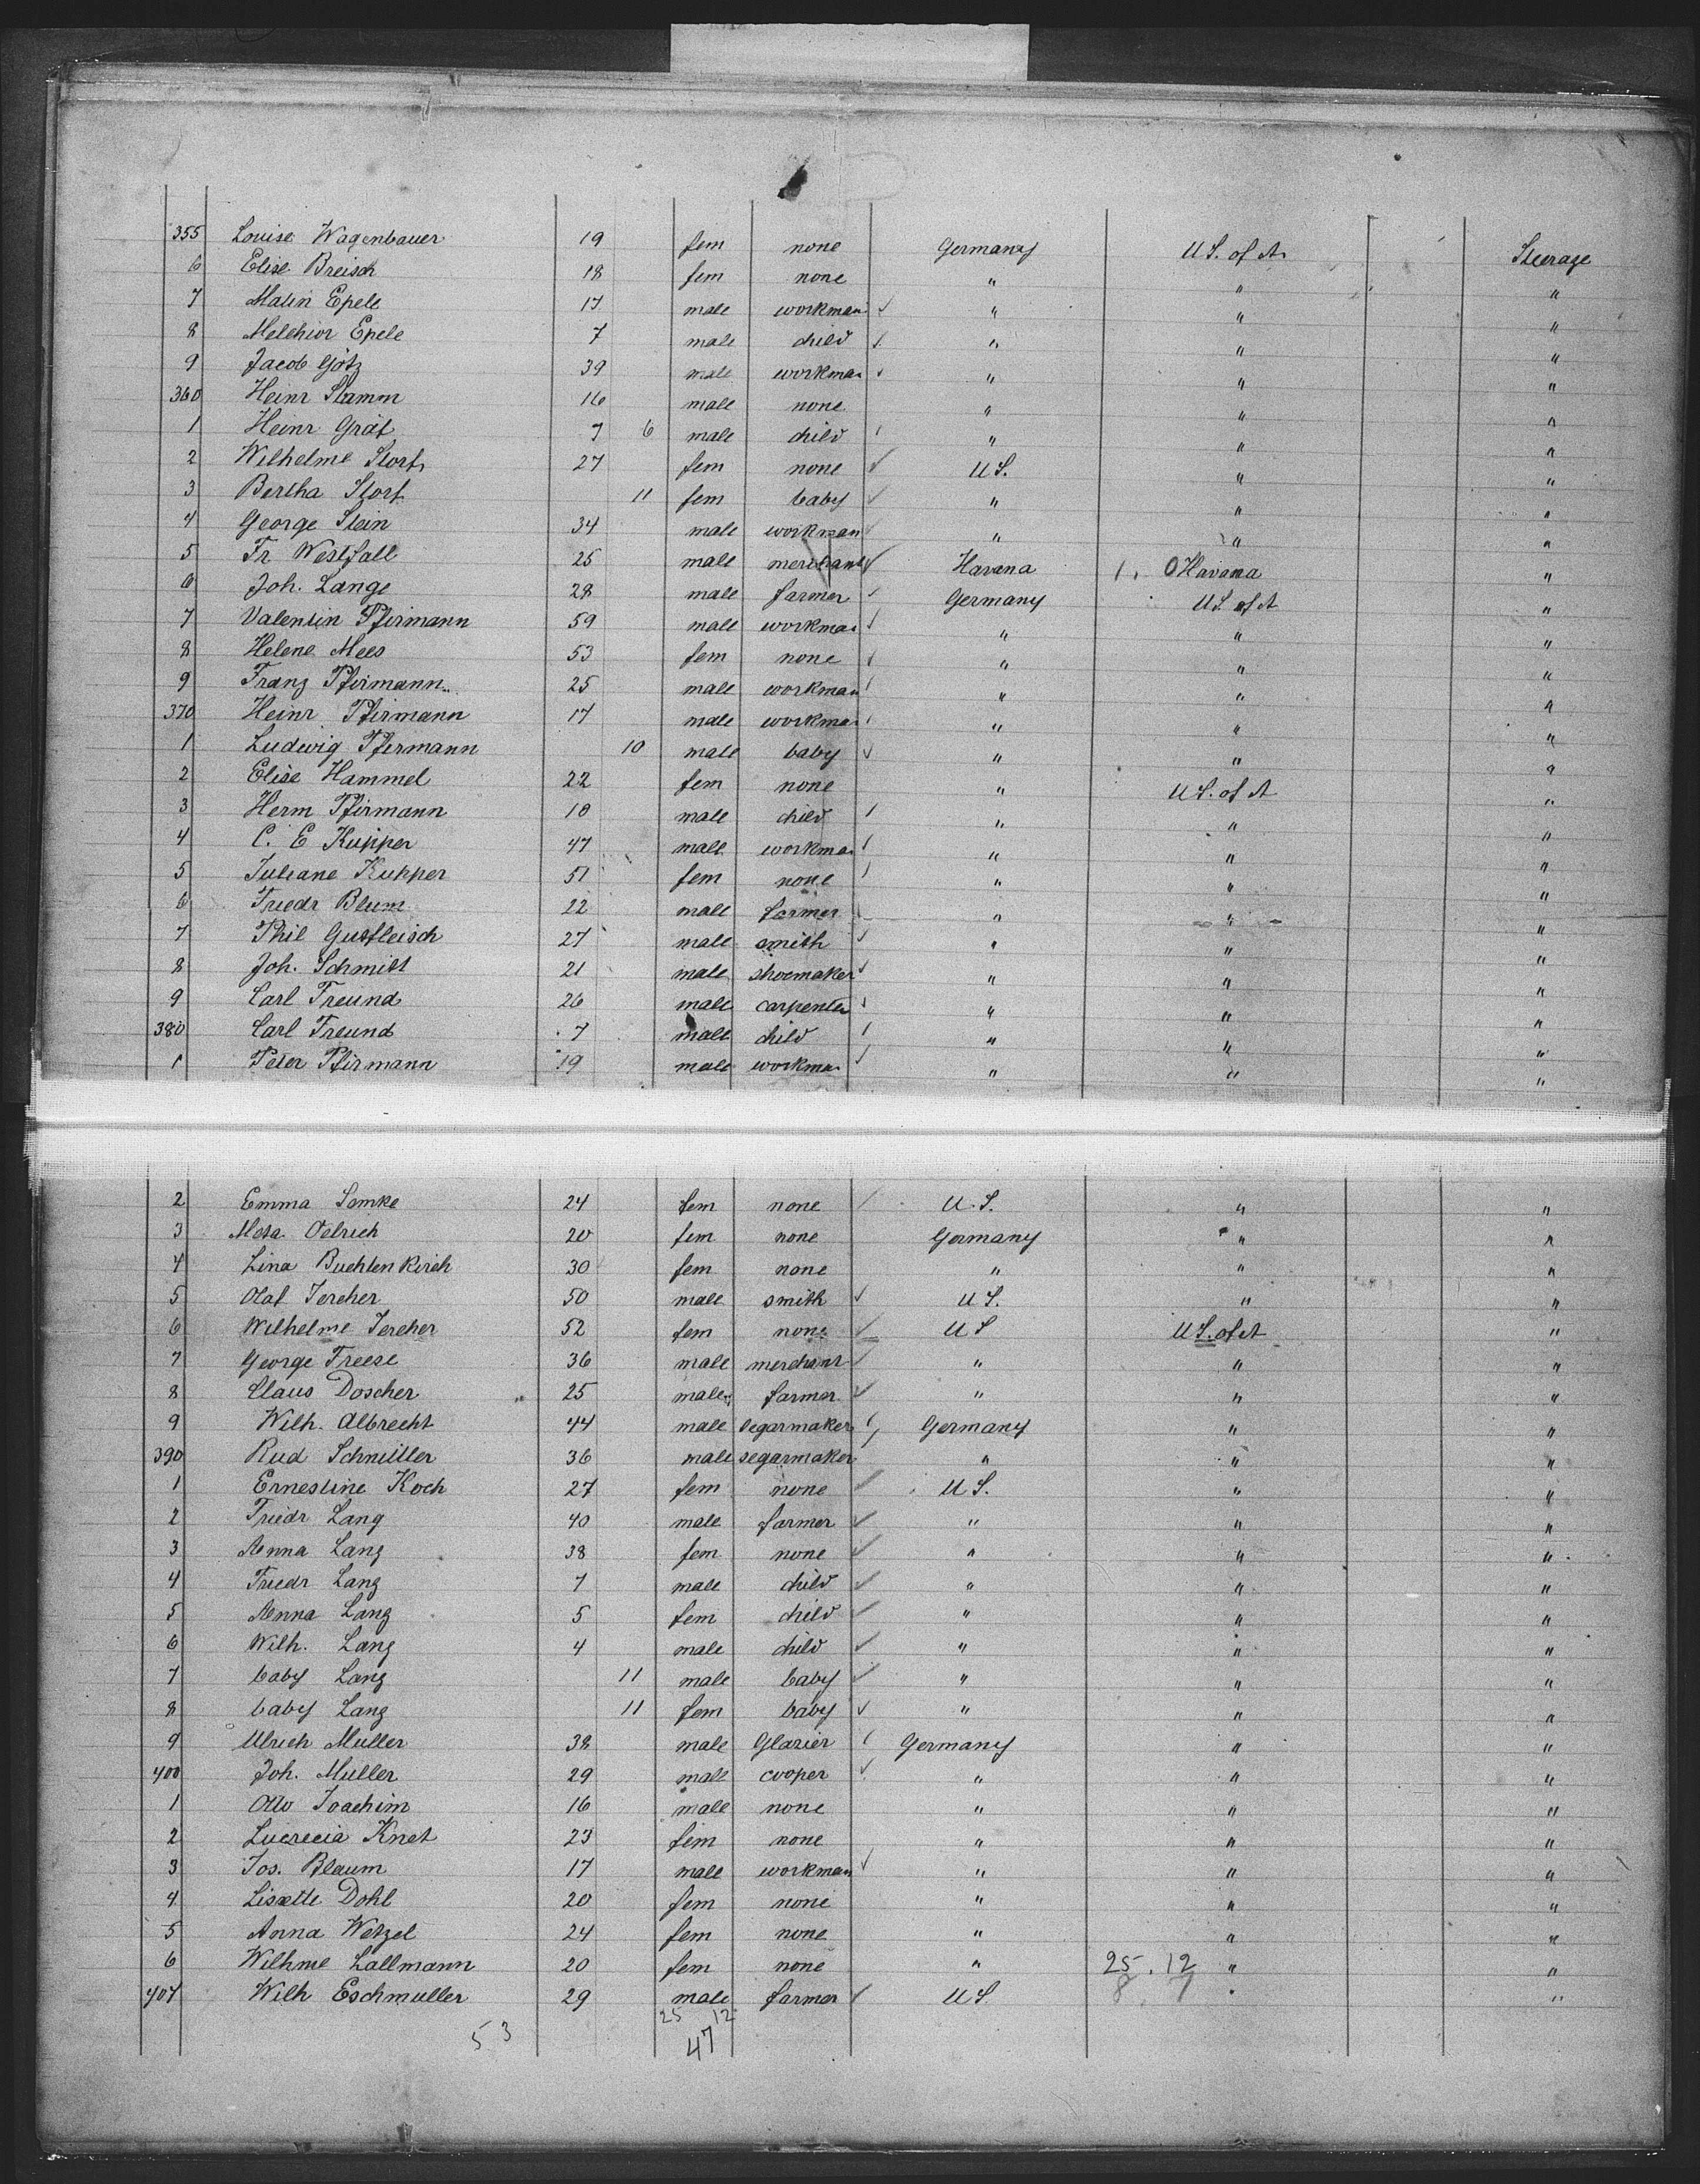 355 Louise Wagenbauer 19 fem none Germany U S. of A. Steerage
6 Elise Breisch 18 fem none " " "
7 Malin Epele 17 male workman " " "
8 Melchior Epele 7 male child " " "
9 Jacob Götz 39 male workman " " "
360 Heinr Stamm 16 male none " " "
1 Heinr Gräf 7 6 male child " " "
2 Wilhelme Storf 27 fem none U S. " "
3 Bertha Storf 11 fem baby " " "
4 George Stein 34 male workman " " "
5 Fr Westfall 25 male merchant Havana 1. O Havana "
6 Joh. Lange 28 male farmer Germany U S of A "
7 Valentin Pfirmann 59 male workman " " "
8 Helene Mees 53 fem none " " "
9 Franz Pfirmann 25 male workman " " "
370 Heinr Pfirmann 17 male workman " " "
1 Ludwig Pfermann 10 male baby " " "
2 Elise Hammel 22 fem none " U S. of A "
3 Herm Pfirmann 10 male child " " "
4 C. E Kupper 47 male workman " " "
5 Juliane Kupper 51 fem none " " "
6 Friedr Blum 22 male farmer " " "
7 Phil Gutfleisch 27 male smith " " "
8 Joh. Schmitt 21 male shoemaker " " "
9 Carl Freund 26 male carpenter " " "
380 Carl Freund 7 male child " " "
1 Peter Pfirmann 19 male workman " " "
2 Emma Lemke 24 fem none U. S. " "
3 Meta Oelrich 20 fem none Germany " "
4 Lina Buchtenkirch 30 fem none " " "
5 Olaf Jercher 50 male smith U S. " "
6 Wilhelme Jercher 52 fem none U S U S. of A "
7 George Freese 36 male merchant " " "
8 Claus Doscher 25 male farmer " " "
9 Wilh. Albrecht 44 male segarmaker Germany " "
390 Rud Schmiller 36 male segarmaker " " "
1 Ernestine Koch 27 fem none U S. " "
2 Friedr Lang 40 male farmer " " "
3 Anna Lang 38 fem none " " "
4 Friedr Lang 7 male child " " "
5 Anna Lang 5 fem child " " "
6 Wilh. Lang 4 male child " " "
7 baby Lang 11 male baby " " "
8 baby Lang 11 fem baby " " "
9 Ulrich Muller 38 male Glazier Germany " "
400 Joh. Muller 29 male cooper " " "
1 Otto Joachim 16 male none " " "
2 Lucrecia Knet 23 fem none " " "
3 Jos. Blaum 17 male workman " " "
4 Lisette Dohl 20 fem none " " "
5 Anna Wetzel 24 fem none " " "
6 Wilhme Lallmann 20 fem none " 25. 12 " "
407 Wilh Eschmuller 29 male farmer U S 8 7 " "
25 12
53 47